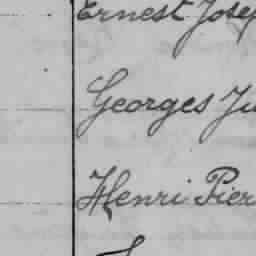 Ernest Josep
Georges Ju
Henri Pier